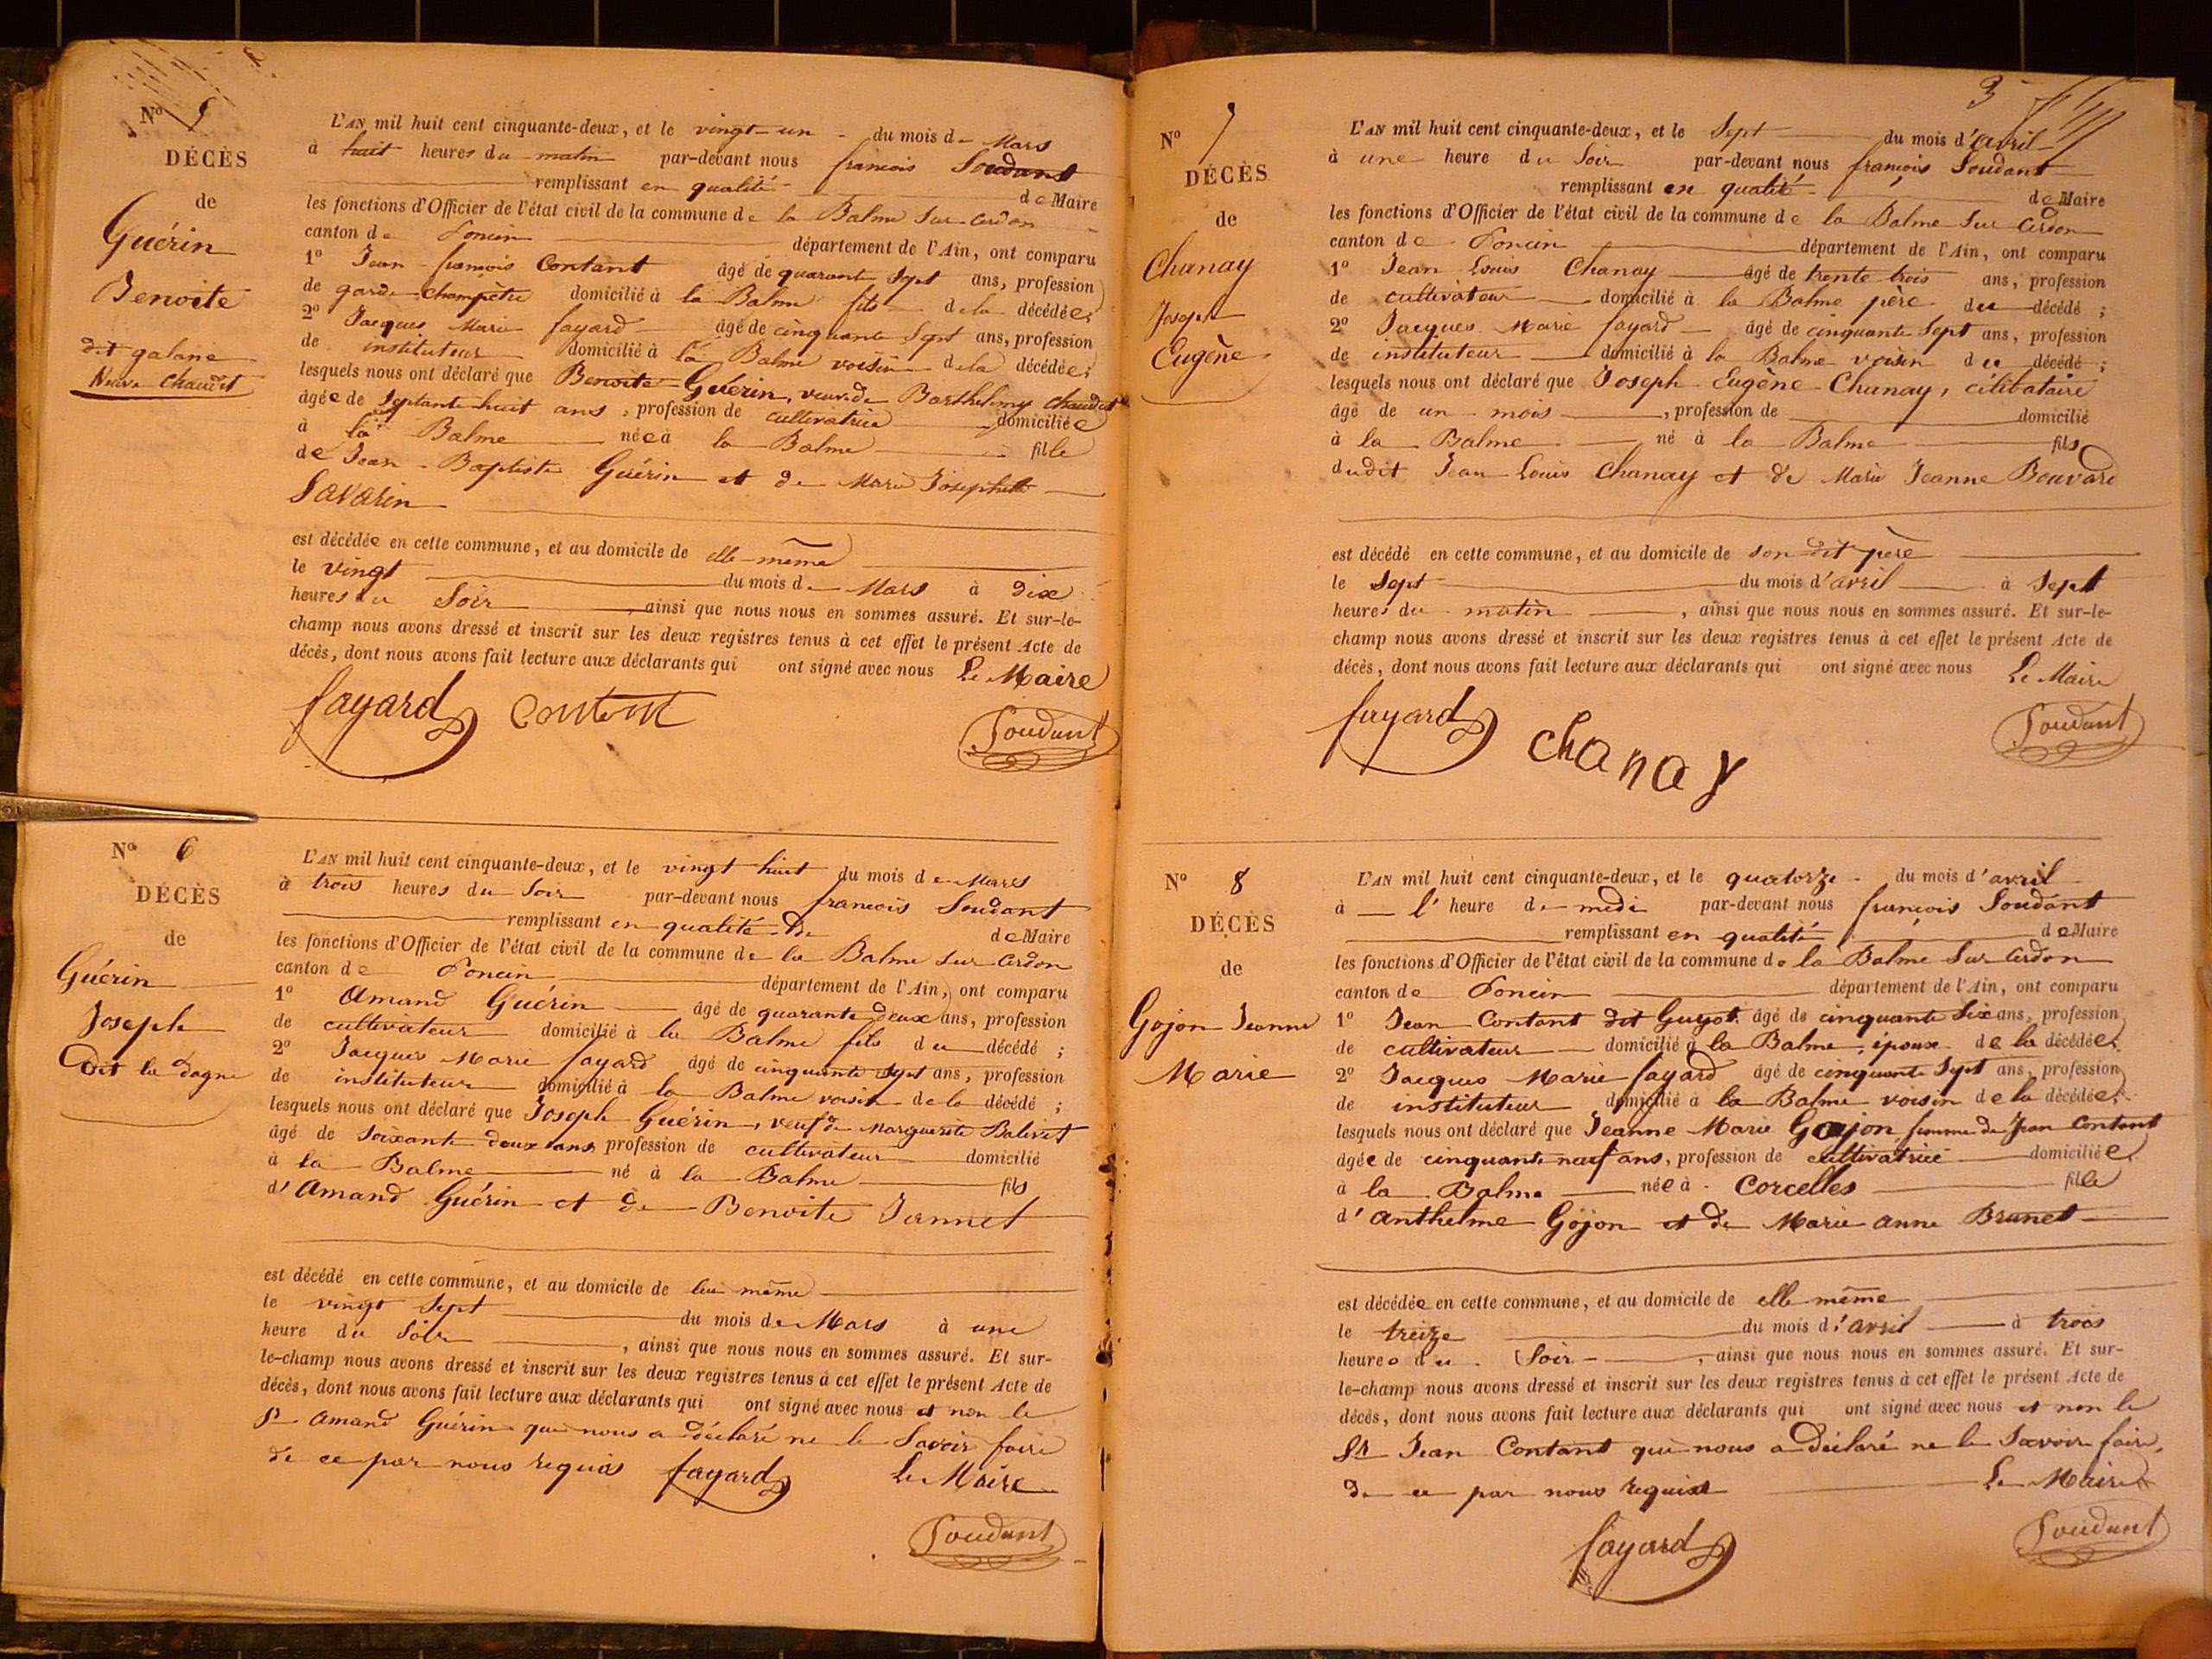 Nº 5
DÉCÈS
de
Guérin
Benoite
dit galane
Veuve Chaudet
L'AN mil huit cent cinquante-deux, et le vingt-un du mois de Mars
à huit heures du matin par-devant nous françois Soudant
remplissant en qualité de Maire
les fonctions d'Officier de l'état civil de la commune de la Balme sur Cerdon
canton de Poncin département de l'Ain, ont comparu
1º Jean françois Contant âgé de quarante Sept ans, profession
de garde-champêtre domicilié à la Balme fils de la décédée;
2º Jacques Marie fayard âgé de cinquante Sept ans, profession
de instituteur domicilié à la Balme voisin de la décédée;
lesquels nous ont déclaré que Benoite Guérin, veuve de Barthelemy Chaudet
âgée de Septante huit ans, profession de cultivatrice domiciliée
à la Balme née à la Balme fille
de Jean-Baptiste Guérin et de Marie Josephte
Savarin
est décédée en cette commune, et au domicile de elle-même
le vingt du mois de Mars à dix
heures du Soir, ainsi que nous nous en sommes assuré. Et sur-le-
champ nous avons dressé et inscrit sur les deux registres tenus à cet effet le présent Acte de
décès, dont nous avons fait lecture aux déclarants qui ont signé avec nous Le Maire
fayard Contant
Soudant
Nº 6
DÉCÈS
de
Guérin
Joseph
dit la dagne
L'AN mil huit cent cinquante-deux, et le vingt huit du mois de Mars
à trois heures du Soir par-devant nous françois Soudant
remplissant en qualité de de Maire
les fonctions d'Officier de l'état civil de la commune de la Balme sur Cerdon
canton de Poncin département de l'Ain, ont comparu
1º Amand Guérin âgé de quarante deux ans, profession
de cultivateur domicilié à la Balme fils du décédé;
2º Jacques Marie fayard âgé de cinquante Sept ans, profession
de instituteur domicilié à la Balme voisin de la décédé;
lesquels nous ont déclaré que Joseph Guérin, veuf de Marguerite Balivet
âgé de Soixante douze ans, profession de cultivateur domicilié
à la Balme né à la Balme fils
d'Amand Guérin et de Benoite Jannet
est décédé en cette commune, et au domicile de lui même
le vingt Sept du mois de Mars à une
heure du Soir, ainsi que nous nous en sommes assuré. Et sur-
le-champ nous avons dressé et inscrit sur les deux registres tenus à cet effet le présent Acte de
décès, dont nous avons fait lecture aux déclarants qui ont signé avec nous et non le
Sr Amand Guérin qui nous a déclaré ne le Savoir faire
de ce par nous requis fayard Le Maire
Soudant
3
Nº 7
DÉCÈS
de
Chanay
Joseph
Eugène
L'AN mil huit cent cinquante-deux, et le Sept du mois d'avril
à une heure du Soir par-devant nous françois Soudant
remplissant en qualité de Maire
les fonctions d'Officier de l'état civil de la commune de la Balme sur Cerdon
canton de Poncin département de l'Ain, ont comparu
1º Jean Louis Chanay âgé de trente trois ans, profession
de cultivateur domicilié à la Balme père du décédé;
2º Jacques Marie fayard âgé de cinquante Sept ans, profession
de instituteur domicilié à la Balme voisin du décédé;
lesquels nous ont déclaré que Joseph Eugène Chanay, célibataire
âgé de un mois, profession de domicilié
à la Balme né à la Balme fils
dudit Jean Louis Chanay et de Marie Jeanne Bouvard
est décédé en cette commune, et au domicile de son dit père
le Sept du mois d'avril à Sept
heures du matin, ainsi que nous nous en sommes assuré. Et sur-le-
champ nous avons dressé et inscrit sur les deux registres tenus à cet effet le présent Acte de
décès, dont nous avons fait lecture aux déclarants qui ont signé avec nous Le Maire
fayard chanay
Soudant
Nº 8
DÉCÈS
de
Gojon Jeanne
Marie
L'AN mil huit cent cinquante-deux, et le quatorze du mois d'avril
à l'heure de midi par-devant nous françois Soudant
remplissant en qualité de Maire
les fonctions d'Officier de l'état civil de la commune de la Balme sur Cerdon
canton de Poncin département de l'Ain, ont comparu
1º Jean Contant dit Guyot âgé de cinquante Six ans, profession
de cultivateur domicilié à la Balme, époux de la décédée;
2º Jacques Marie fayard âgé de cinquante Sept ans, profession
de instituteur domicilié à la Balme voisin de la décédée;
lesquels nous ont déclaré que Jeanne Marie Gojon, femme de Jean Contant
âgée de cinquante neuf ans, profession de cultivatrice domiciliée
à la Balme née à Corcelles fille
d'Anthelme Gojon et de Marie anne Brunet
est décédée en cette commune, et au domicile de elle même
le treize du mois d'avril à trois
heures du Soir, ainsi que nous nous en sommes assuré. Et sur-
le-champ nous avons dressé et inscrit sur les deux registres tenus à cet effet le présent Acte de
décès, dont nous avons fait lecture aux déclarants qui ont signé avec nous et non le
Sr Jean Contant qui nous a déclaré ne le Savoir faire,
de ce par nous requis Le Maire
fayard
Soudant